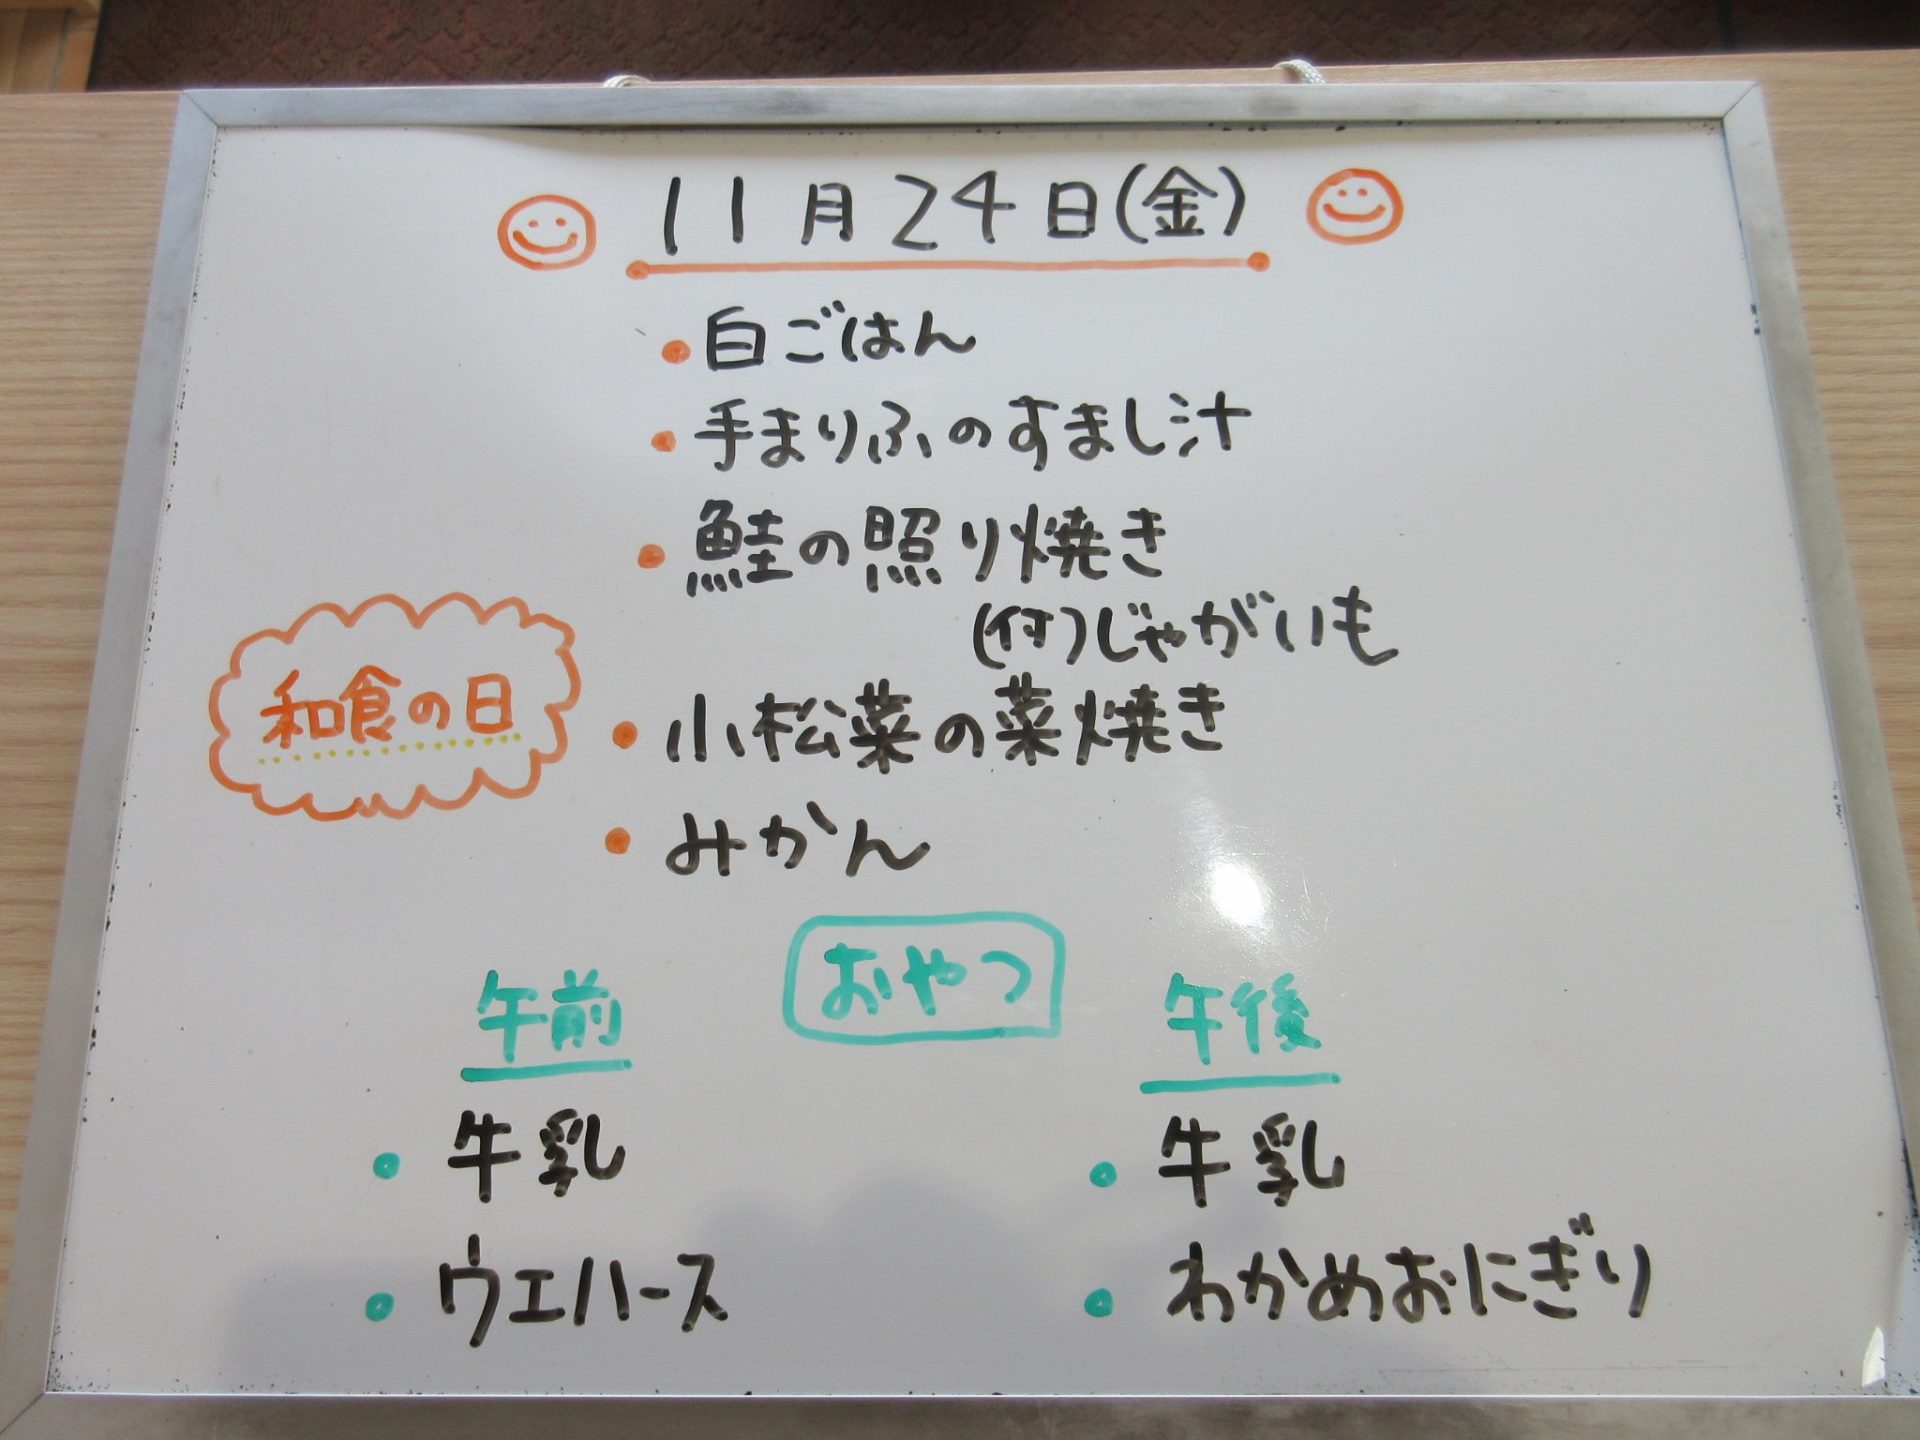 11月24日(金)
・白ごはん
・手まりふのすまし汁
・鮭の照り焼き
(付)じゃがいも
和食の日
・小松菜の菜焼き
・みかん
おやつ
午前
・牛乳
・ウエハース
午後
・牛乳
・わかめおにぎり